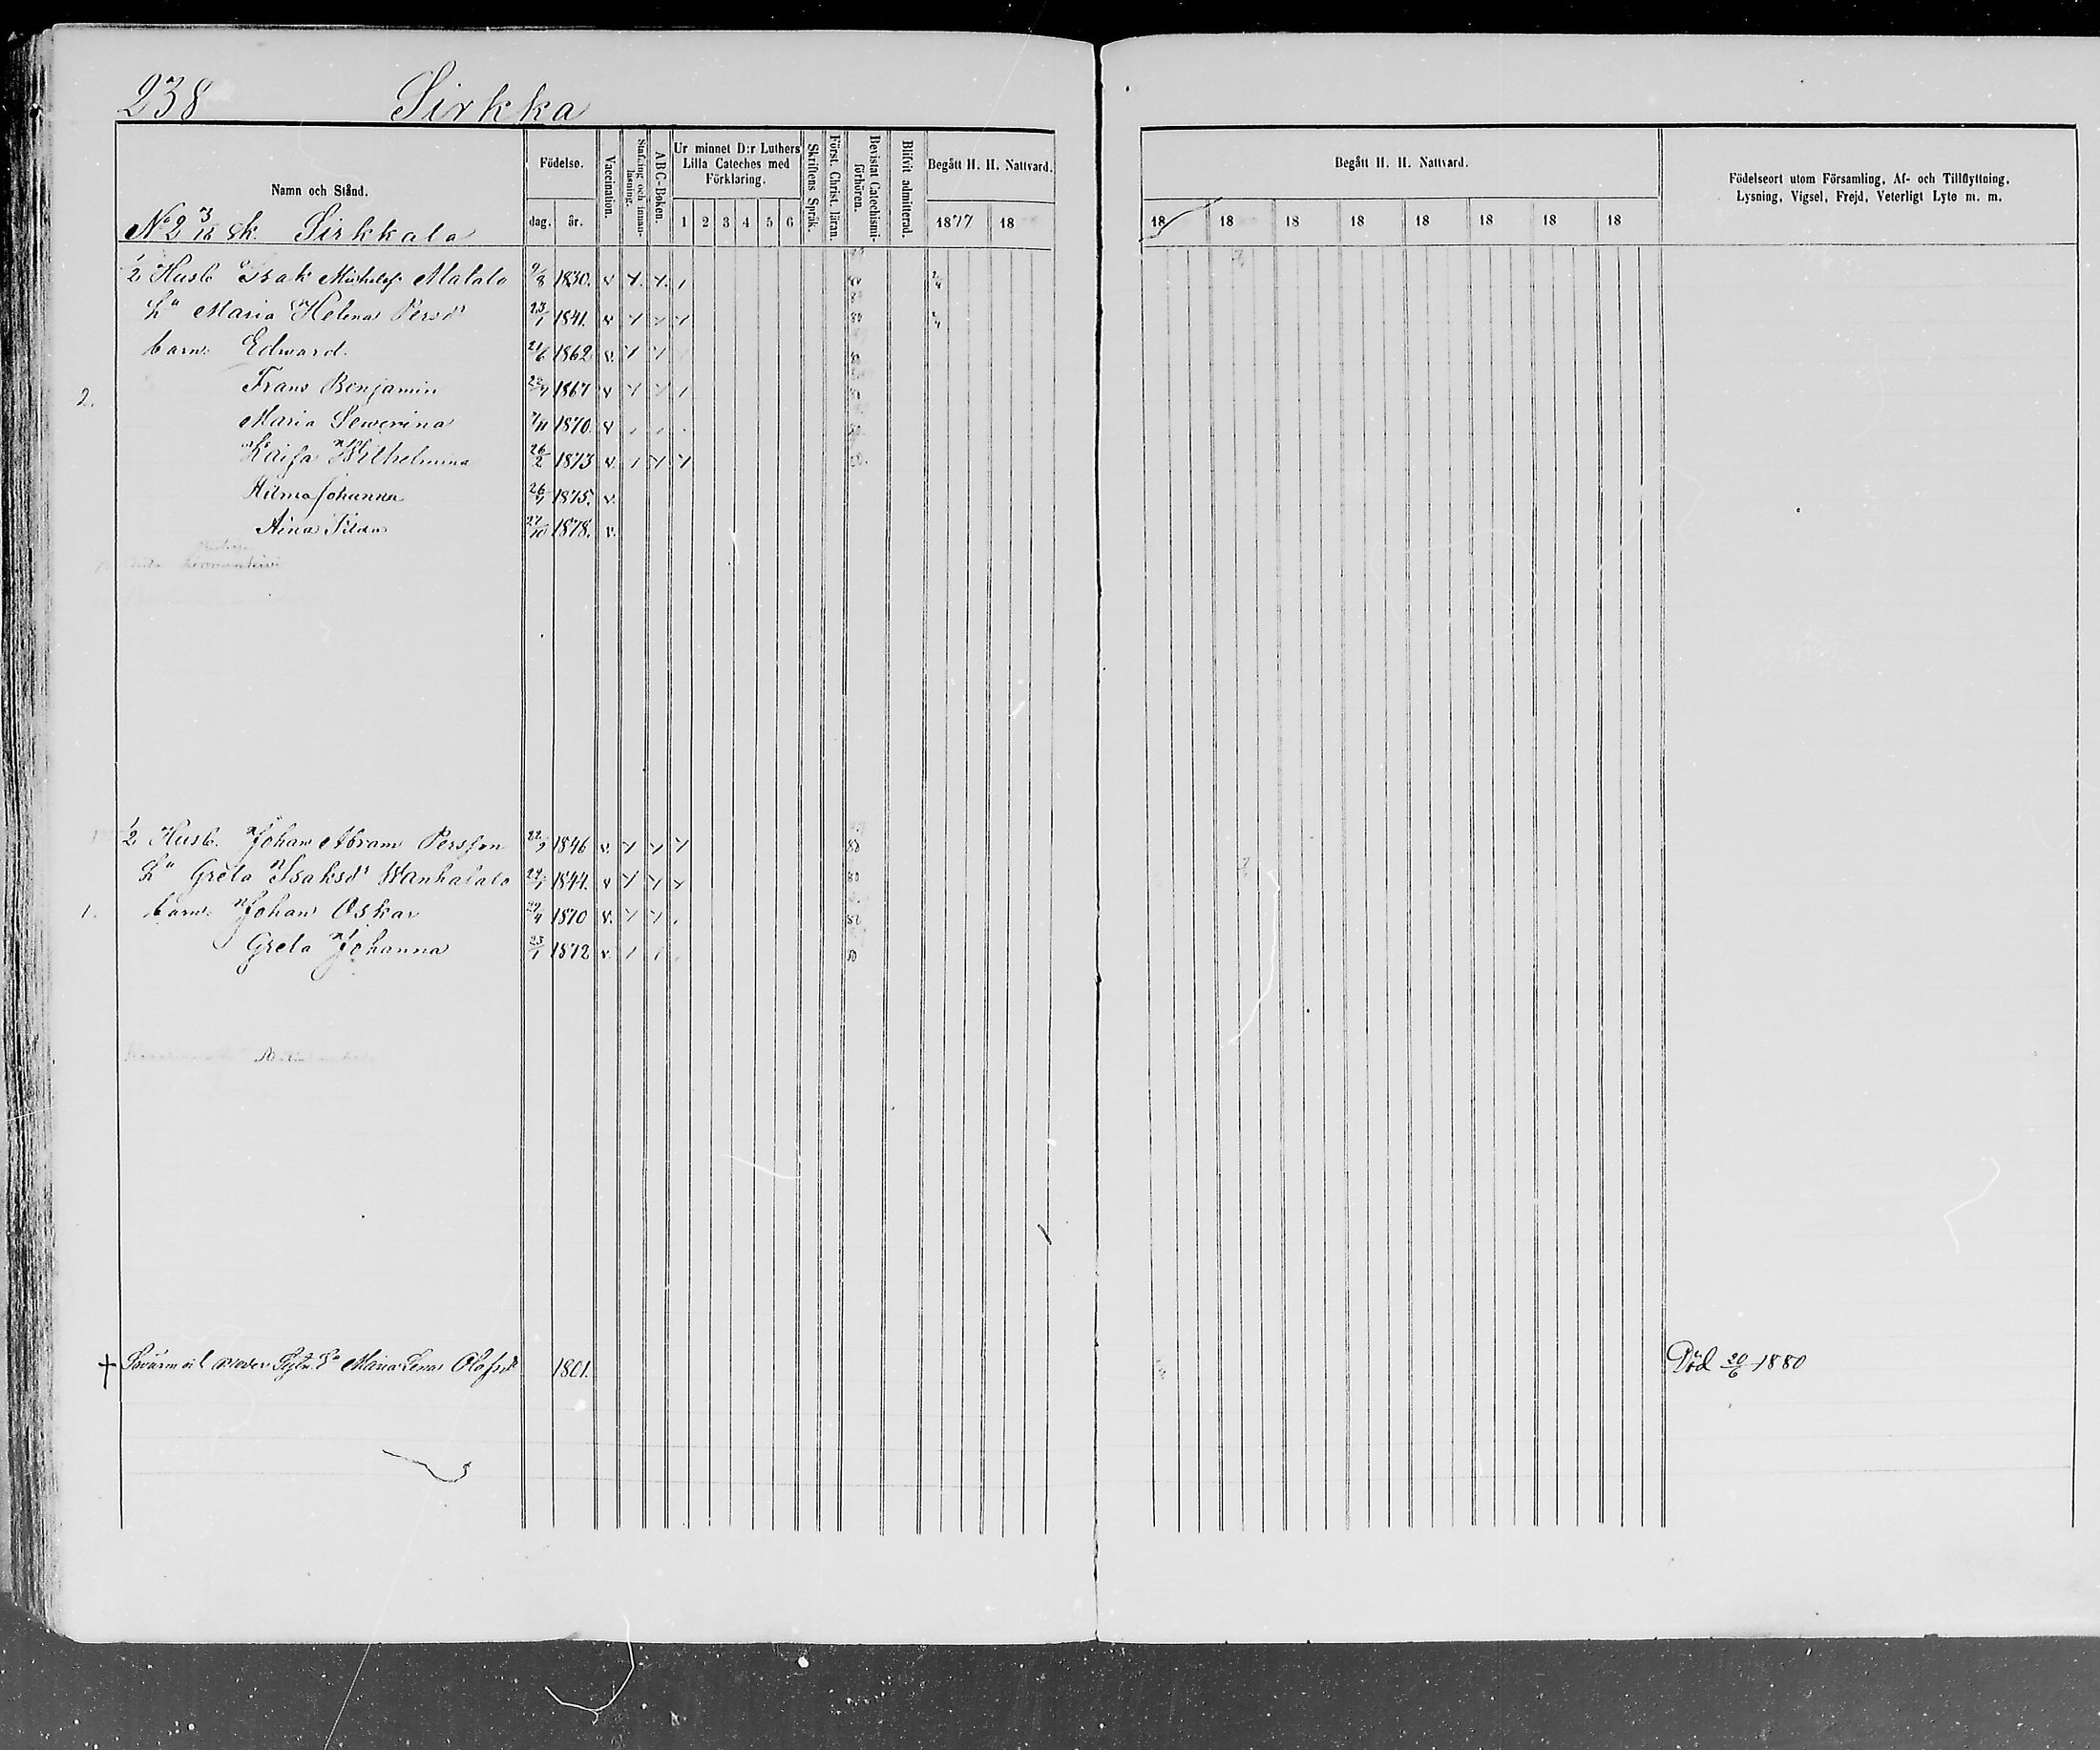 238 Sirkka
Namn och Stånd.
Födelse.
dag. år.
Vaccination.
Stafning och innan-läsning.
ABC-Boken.
Ur minnet D:r Luthers Lilla Cateches med Förklaring.
1 2 3 4 5 6
Skriftens Språk.
Först. Christ. läran.
Bevistat Catechismi-förhören.
Blifvit admitterad.
Begått H. H. Nattvard.
1877 18
Begått H. H. Nattvard.
18 18 18 18 18 18 18 18
Födelseort utom Församling, Af- och Tillflyttning,
Lysning, Vigsel, Frejd, Veterligt Lyte m. m.
No 2 3/16 Sk. Sirkkala
1/2 Husb Isak Michelss Alatalo 9/8 1830. v
h:u Maria Helena Persd:r 23/1 1841. v 80
barn: Edward. 21/6 1862 v. 80
2. Frans Benjamin 1867 v
Maria Sewerina 1870. v
Kaisa Wilhelmina 26/2 1873 v.
Hilma Johanna 1875. v.
Aina Tilda 27/10 1878. v.
1/2 Husb. Johan Abram Persson 1846 v. 80
h:u Greta Isaksd:r Wanhatalo 1844. v 80
1. barn: Johan Oskar 1870 v. 80
Greta Johanna 23/1 1872 v. 80
† Moder Maria Lena Olofsd:r 1801. Död 20/6 1880